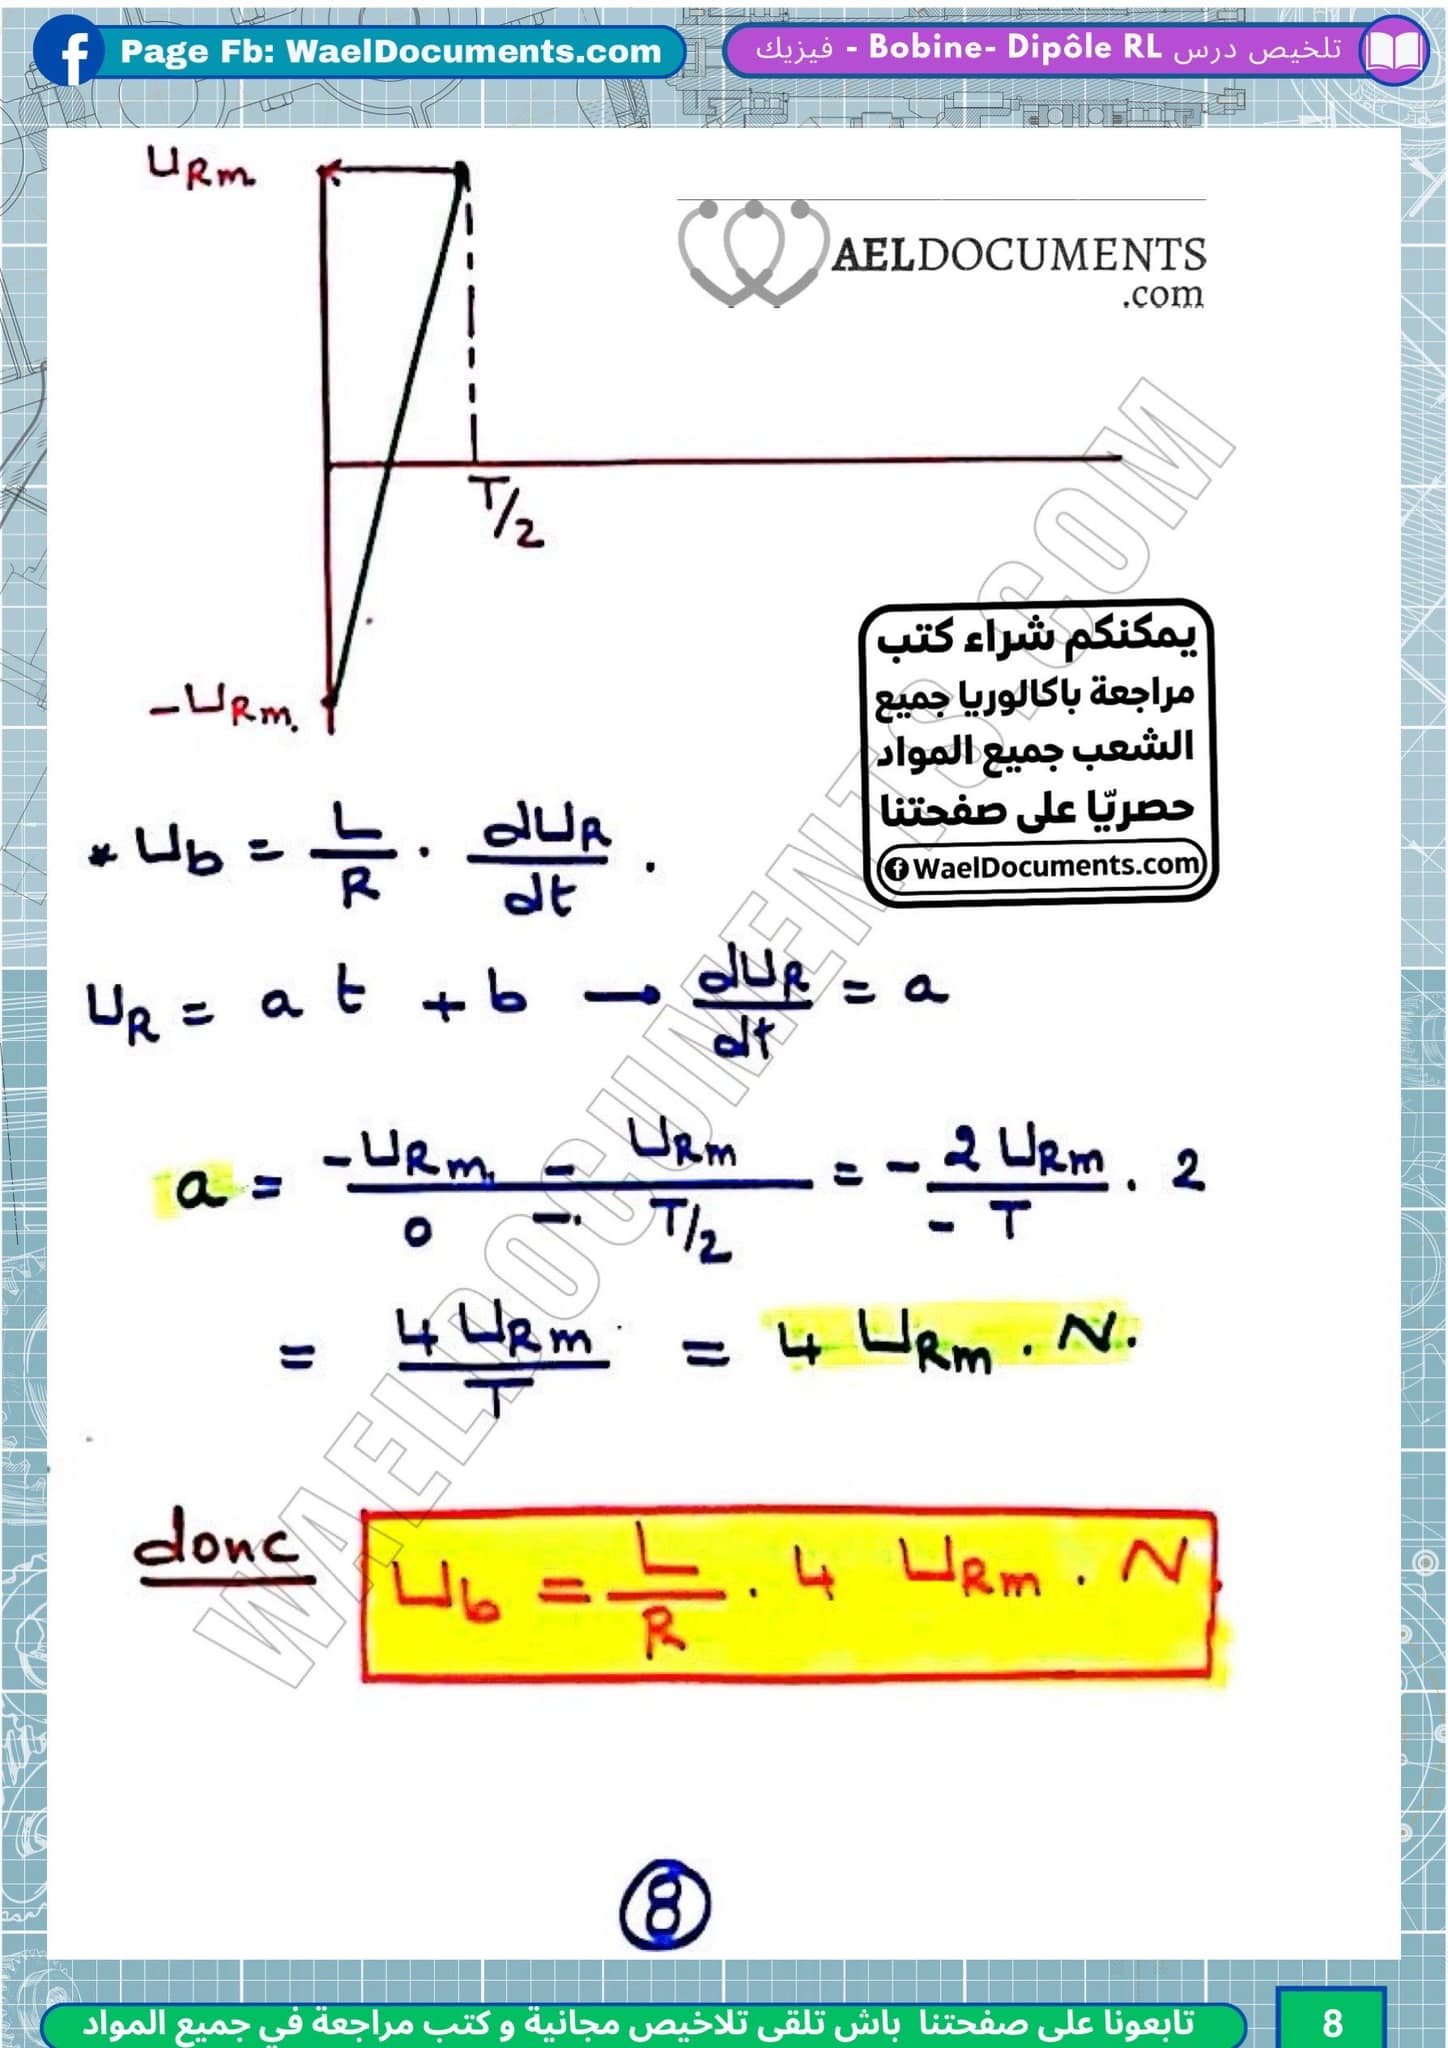 Page Fb: WaelDocuments.com
تلخيص درس Bobine- Dipôle RL - فيزيك
URm
AELDOCUMENTS
.com
T/2
-URm.
يمكنكم شراء كتب
مراجعة باكالوريا جميع
الشعب جميع المواد
حصريّا على صفحتنا
WaelDocuments.com
* Ub = L/R . dUR/dt .
UR = a t + b → dUR/dt = a
a = (-URm. - URm)/(0 - T/2) = - 2 URm/- T . 2
= 4 URm/T = 4 URm . N.
donc Ub = L/R . 4 URm . N.
WAELDOCUMENTS.COM
8
تابعونا على صفحتنا باش تلقى تلاخيص مجانية و كتب مراجعة في جميع المواد
8